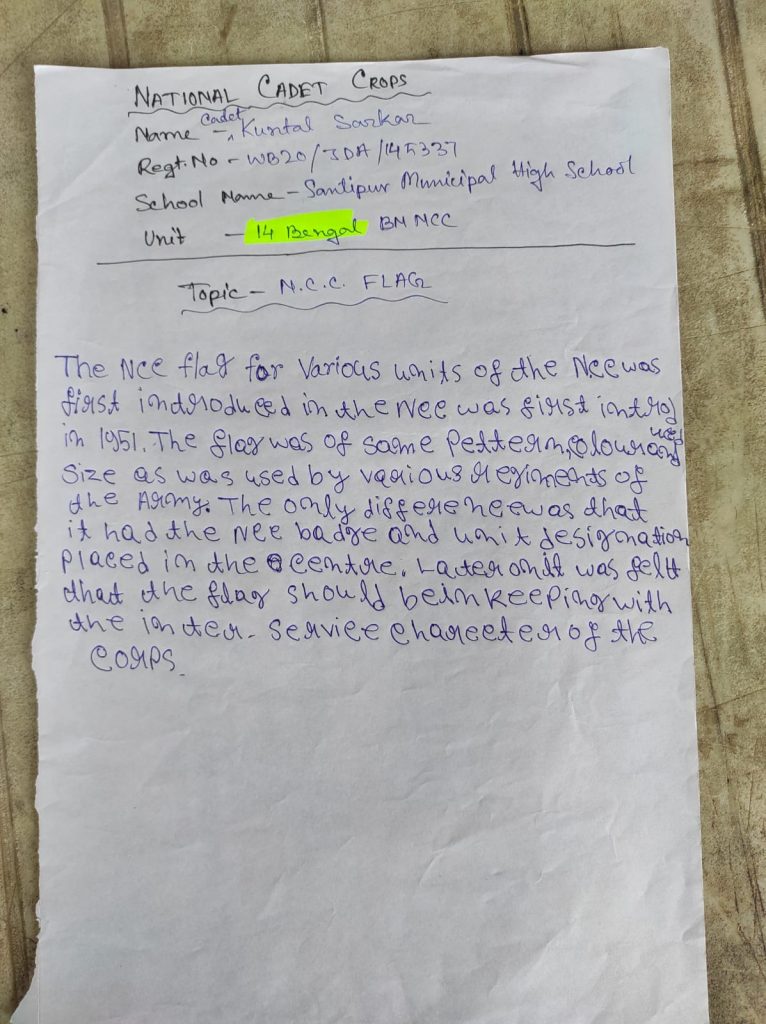 NATIONAL CADET CROPS
Name - Cadet Kuntal Sarkar
Regt. No - WB20/JDA/145337
School Name - Santipur Municipal High School
Unit - 14 Bengal BN NCC
Topic - N.C.C. FLAG
The NCC flag for Various units of the NCC was
first introduced in the NCC was first introduced
in 1951. The flag was of same Pettern, colour and
Size as was used by various regiments of
the Army. The only difference was that
it had the NCC badge and unit designation
placed in the centre. Later on it was felt
that the flag should be in keeping with
the inter-service charecter of the
Corps.